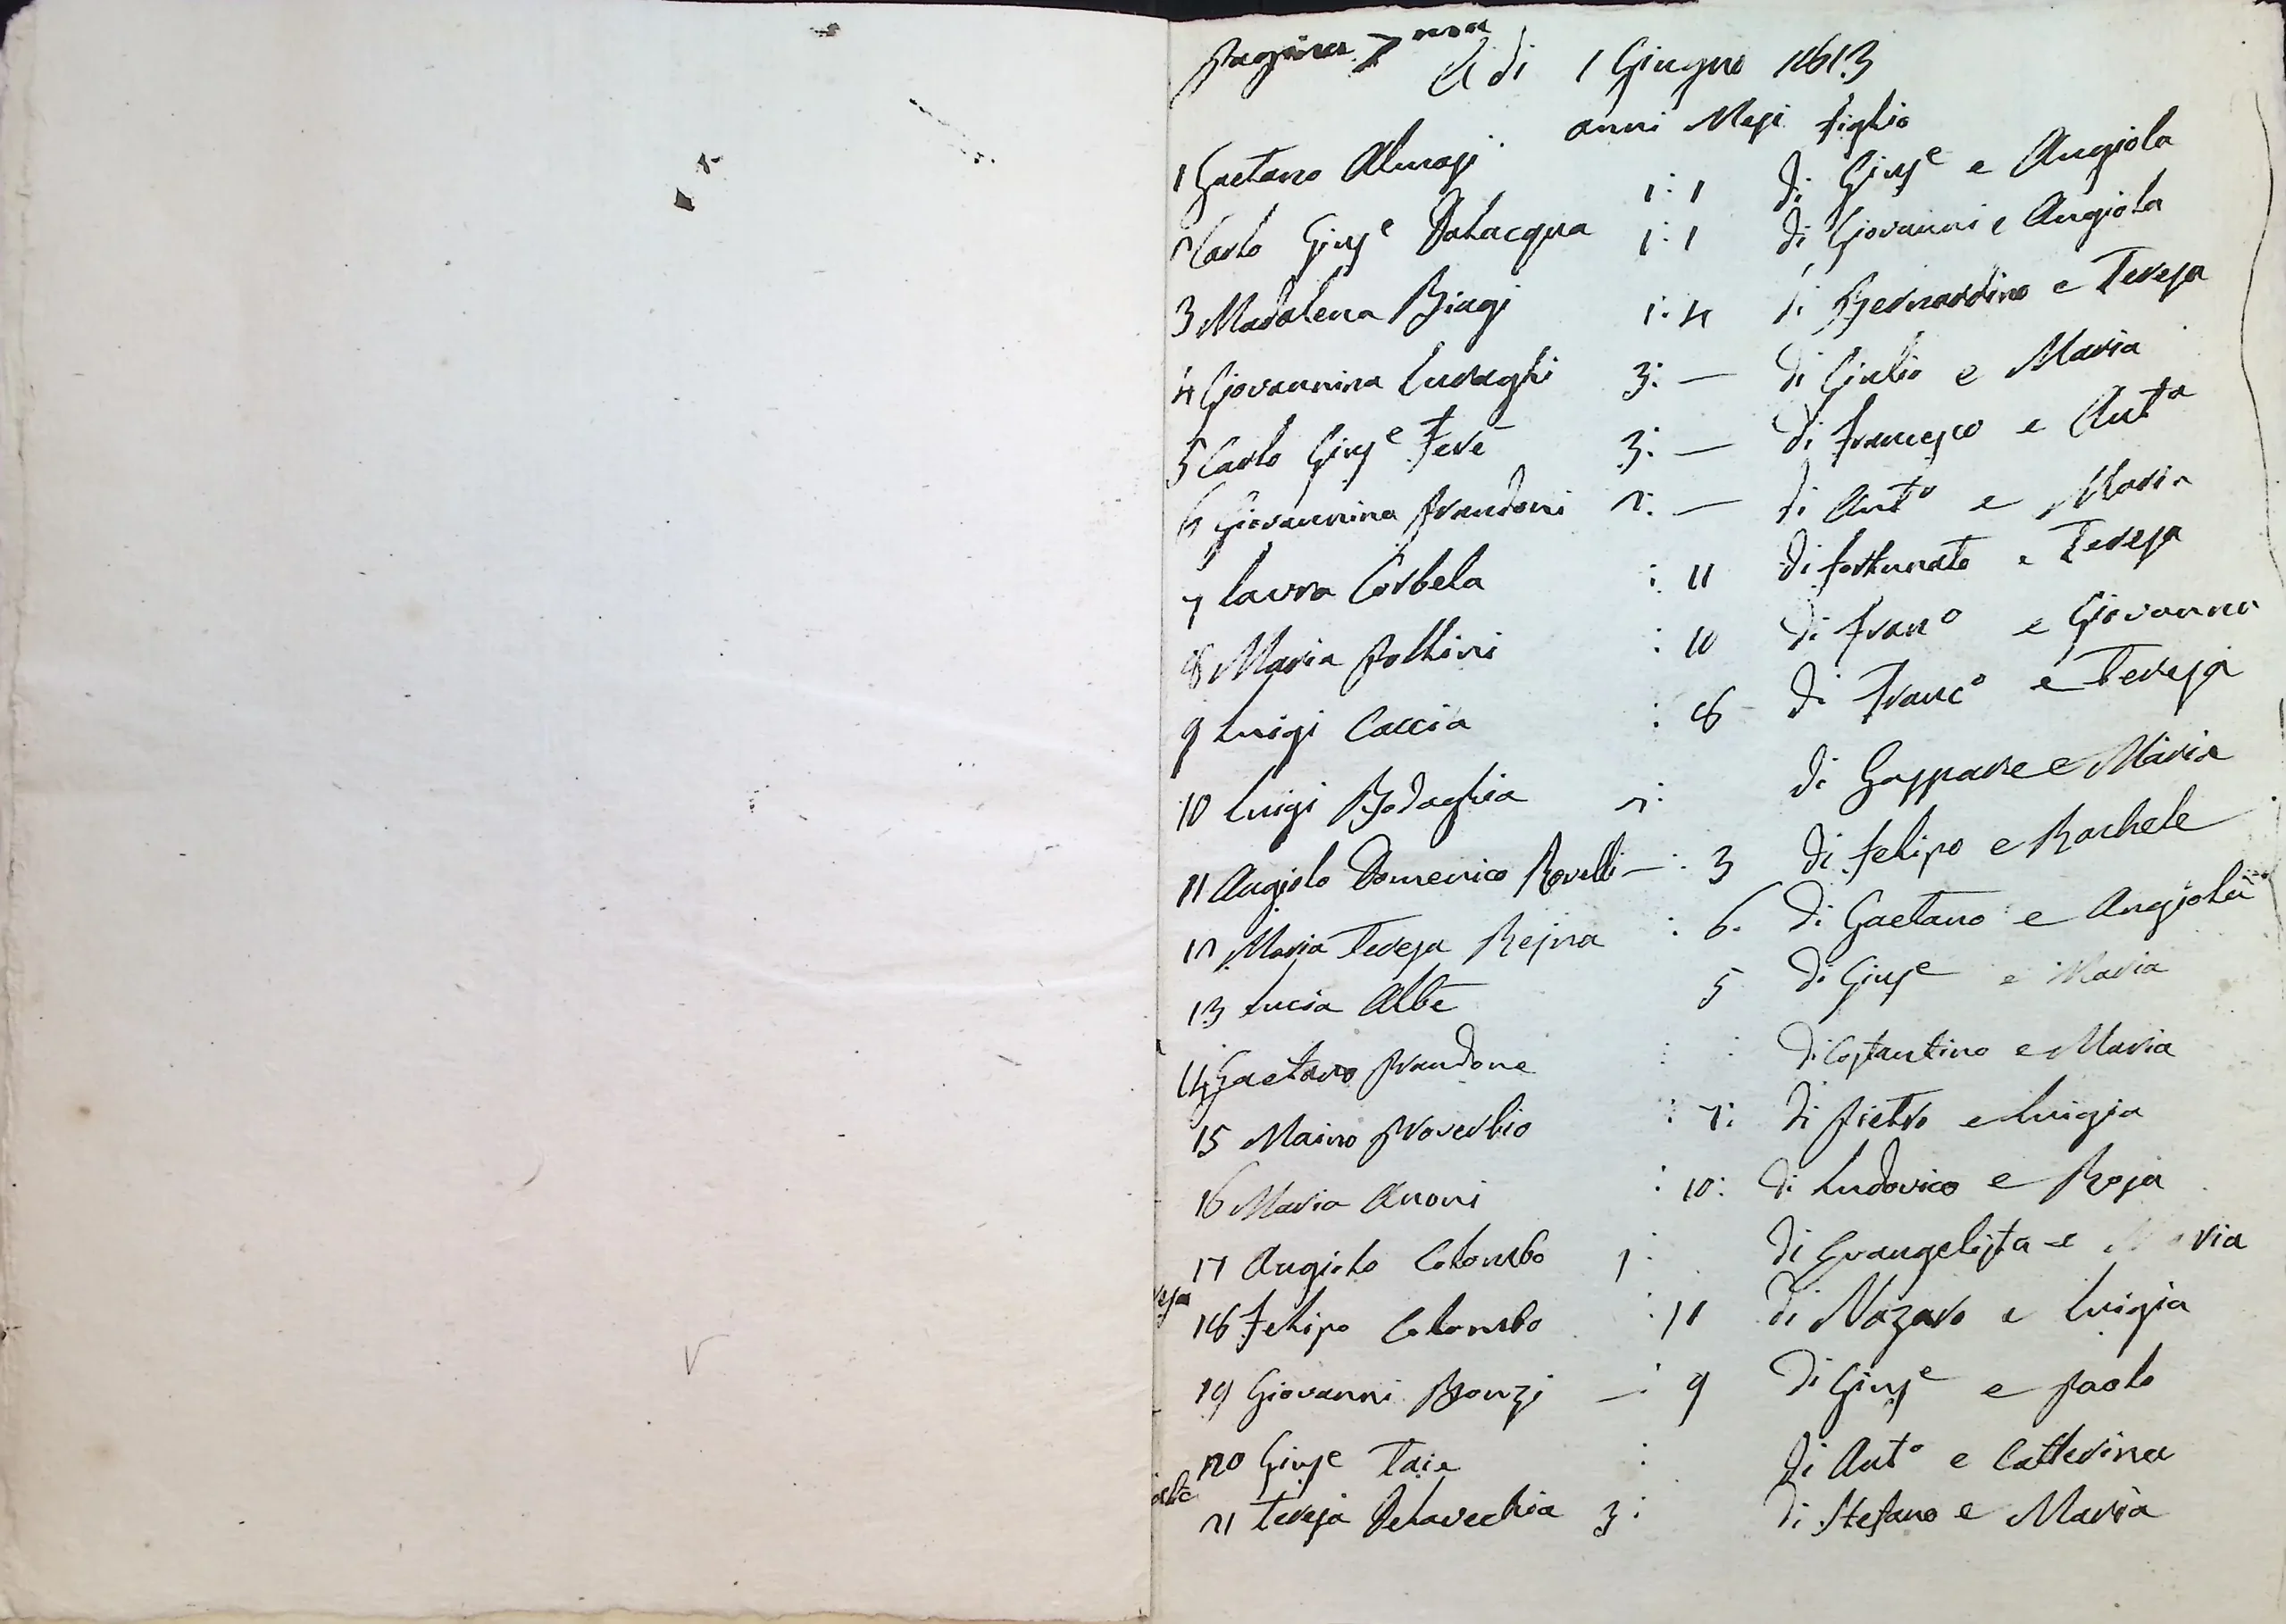 Pagina 7ma
A di 1 Giugno 1813
anni Mesi figlio
1 Gaetano Almasi 1: 1 di Giuse e Angiola
2 Carlo Giuse Dalacqua 1: 1 di Giovanni e Angiola
3 Madalena Biagi 1: 4 di Bernardino e Teresa
4 Giovannina Luraghi 3: — di Giulio e Maria
5 Carlo Giuse Ferè 3: — di Francesco e Anta
6 Giovannina Prandoni 2: — di Anto e Maria
7 Laura Corbela : 11 di fortunato e Teresa
8 Maria Pollini : 10 di Frano e Giovanna
9 Luigi Caccia : 8 di Franco e Teresa
10 Luigi Bodaghia 2: di Gaspare e Maria
11 Angiolo Domenico Rovelli — : 3 di Felipo e Rachele
12 Maria Teresa Rejna : 6. di Gaetano e Angiola
13 Lucia Albè 5 di Giuse e Maria
14 Gaetano Prandone : : di Costantino e Maria
15 Maino Proverbio : 7: di Pietro e Luigia
16 Maria Anoni : 10: di Ludovico e Rosa
17 Angiolo Colombo 1: di Evangelista e Maria
18 Felipo Colombo : 11 di Nazaro e Luigia
19 Giovanni Bonzi — : 9 di Giuse e Paolo
20 Giuse Taie : di Anto e Catterina
21 Teresa Delavechia 3: di Stefano e Maria